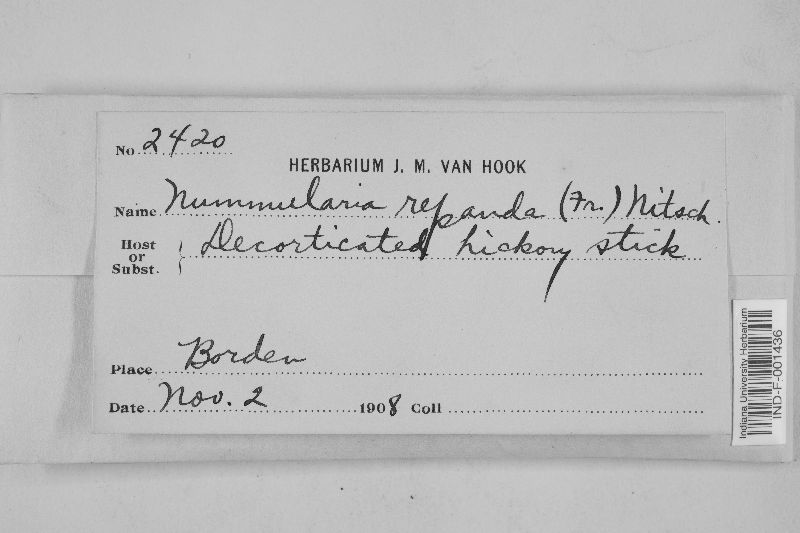 No. 2420
HERBARIUM J. M. VAN HOOK
Name Nummularia repanda (Fr.) Nitsch.
Host or Subst. Decorticated hickory stick
Place Borden
Date Nov. 2 1908 Coll
Indiana University Herbarium
IND-F-001436